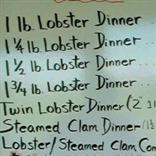 1 lb. Lobster Dinner...
1 1/4 lb. Lobster Dinner..
1 1/2 lb. Lobster Dinner...
1 3/4 lb. Lobster Dinner...
Twin Lobster Dinner (2
Steamed Clam Dinner (1 1/2
Lobster/Steamed Clam Com